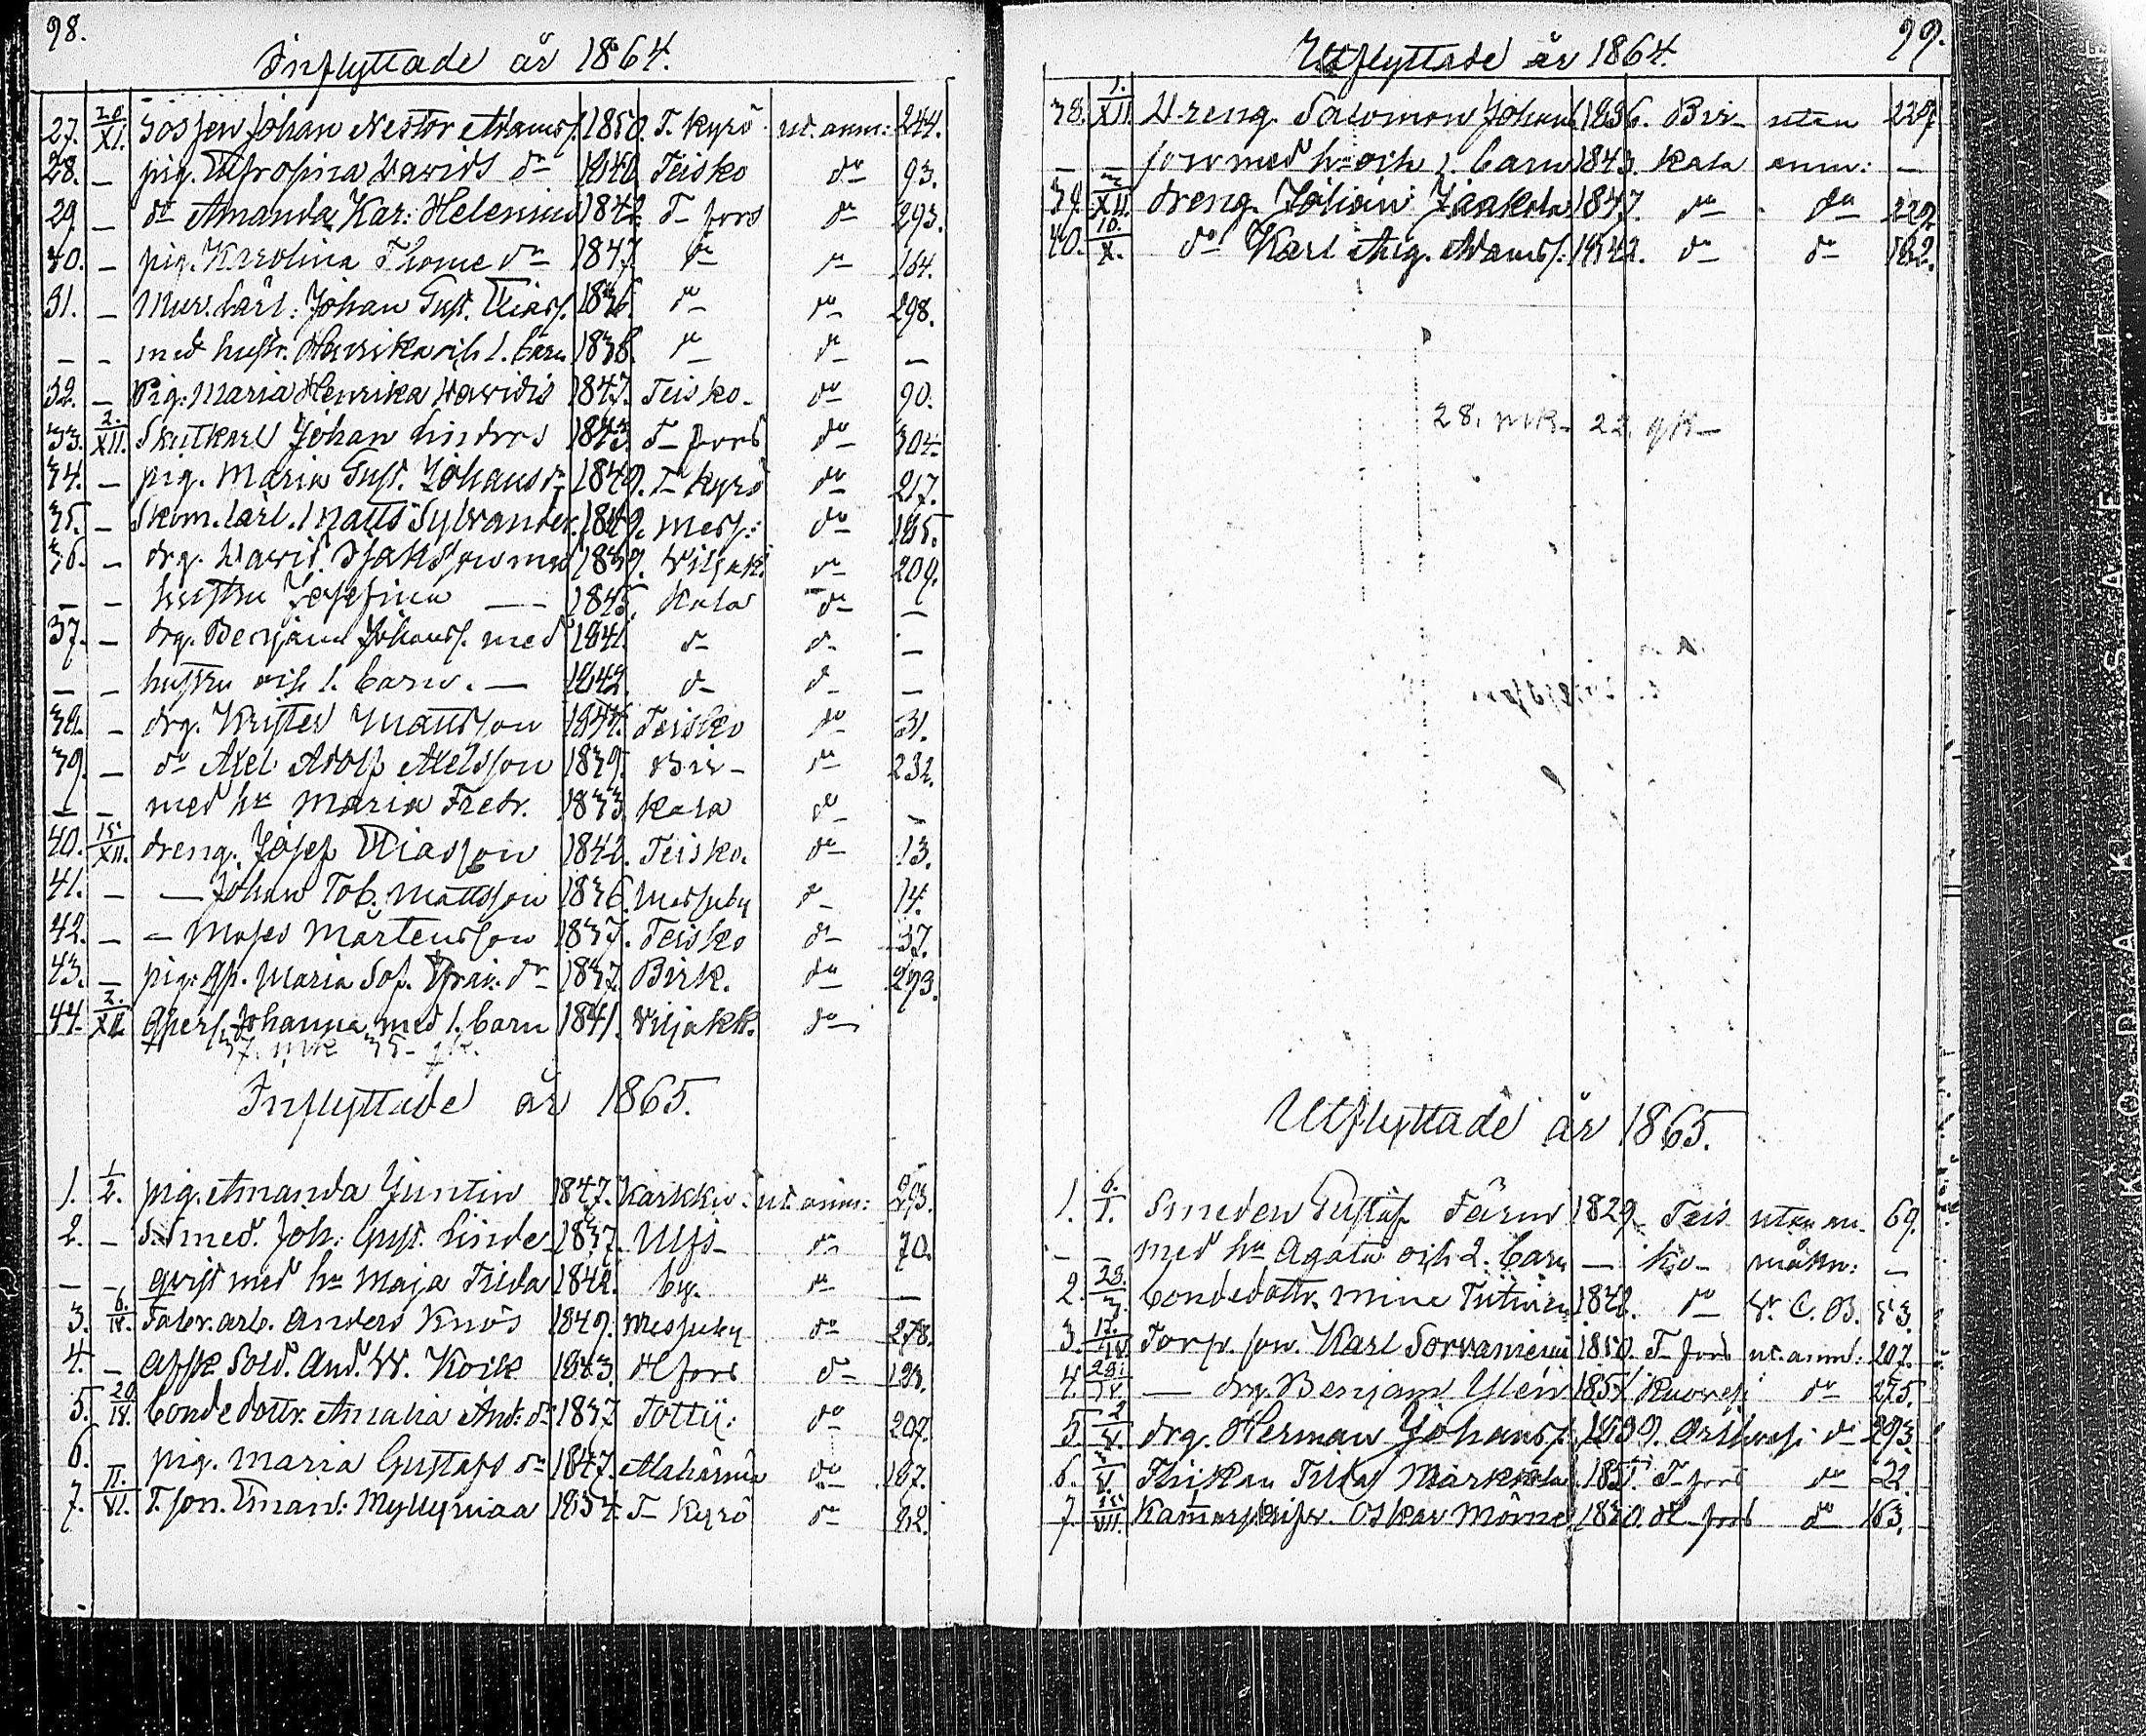 98.
Inflyttade år 1864.
27. 20/XI. Gossen Johan Nestor Adamss. 1850. T. Kyrö ut. anm: 244.
28. — pig. Efrosina Davids dr 1840 Teisko do 93.
29. — dr Amanda Kar: Helenius 1842 T- fors do 293.
30. — pig. Karolina Thome dr 1847. do do 164.
31. — Mur. lärl: Johan Gust. Eliass. 1836. do do 298.
— — med hustr. Henrika och 1. barn 1838. do do —
32. — Pig: Maria Henrika Davids 1847. Teisko- do 90.
33. 2./XII. Skutkarl Johan Lindros 1843. T- fors do 304.
34. — pig. Maria Gust. Johans dr 1849. T- Kyrö do 217.
35. — Skom. lärl. Matts Sylvander. 1849. Mess: do 185.
36. — drg. David Isaksson med 1839. Viljak: do 209.
— — hustru Josefina — 1845. kala do —
37. — drg. Benjam Johanss. med 1841. do do —
— — hustru och 1. barn. — 1842. do do —
38. — drg. Krister Mattsson 1844. Teisko do 31.
39. — do Axel Adolf Axelsson 1839. Bir- do 232.
— — med hu Maria Fredr. 1833. kala do —
40. 15/XII. dreng. Josef Eliasson 1842. Teisko. do 13.
41. — — Johan Tob. Mattsson 1836. Messuby do 14.
42. — — Moses Mårtensson 1837. Teisko do 37.
43. — pig. Maria Sof. dr 1837. Birk. do 293.
44. 2./XII. Johanna med 1. barn 1841. Viljakk. do
37. mk 35- pk.
Inflyttade år 1865.
1. 1/2. pig. Amanda Juntin 1847. Karkku. ut. anm: 293.
2. — S. smed. Joh: Gust. Linde- 1837. Ulfs- do 70.
— — qvist med hu Maja Tilda 1842. by. do —
3. 6./IV. Fabr. arb. Anders Knös 1849. Messuby do 278.
4. — Afsk. Sold. And. W. Koik 1843. H fors do 193.
5. 20/IV. bondedottr. Amalia And: dr 1837. Tottij: do 207.
6. pig. Maria Gustafs dr 1847. Alahärmä do 187.
7. 11./VI. T. son. Eman: Myllymaa 1834. T- Kyrö do 82.
99.
Utflyttade år 1864.
38. 1./XII. Dreng. Salomon Johans 1836. Bir- utan 229.
— — son med hu och 1. barn 1843. kala anm: —
39. XII. dreng. Johan Jaakola 1847. do do 229
40. 10./X. do Karl Aug. Adamss. 1842. do do 182.
28. mk- 22. pk-
Utflyttade år 1865.
1. 6./I. Smeden Gustaf Färm 1829. Teis utan an- 69.
— — med hu Agata och 2. barn — ko- märkn: —
2. 23. bondedottr. Mina 1842. do 53.
3. 17. Torp. son. Karl Sorvaniemi 1850. T- fors ut. anm: 207.
4. 23. — drg. Benjam Ylén 1851 Ruoves: do 275.
5. 2/V. drg. Herman Johanss. 1839. do 293.
6. V. Flickan Tilda Markkola 1851. T- fors do 22.
7. 15/VII. Oskar Mörne 1830. H- fors do 163.
KOPAAKI SAA EI TYVÄ